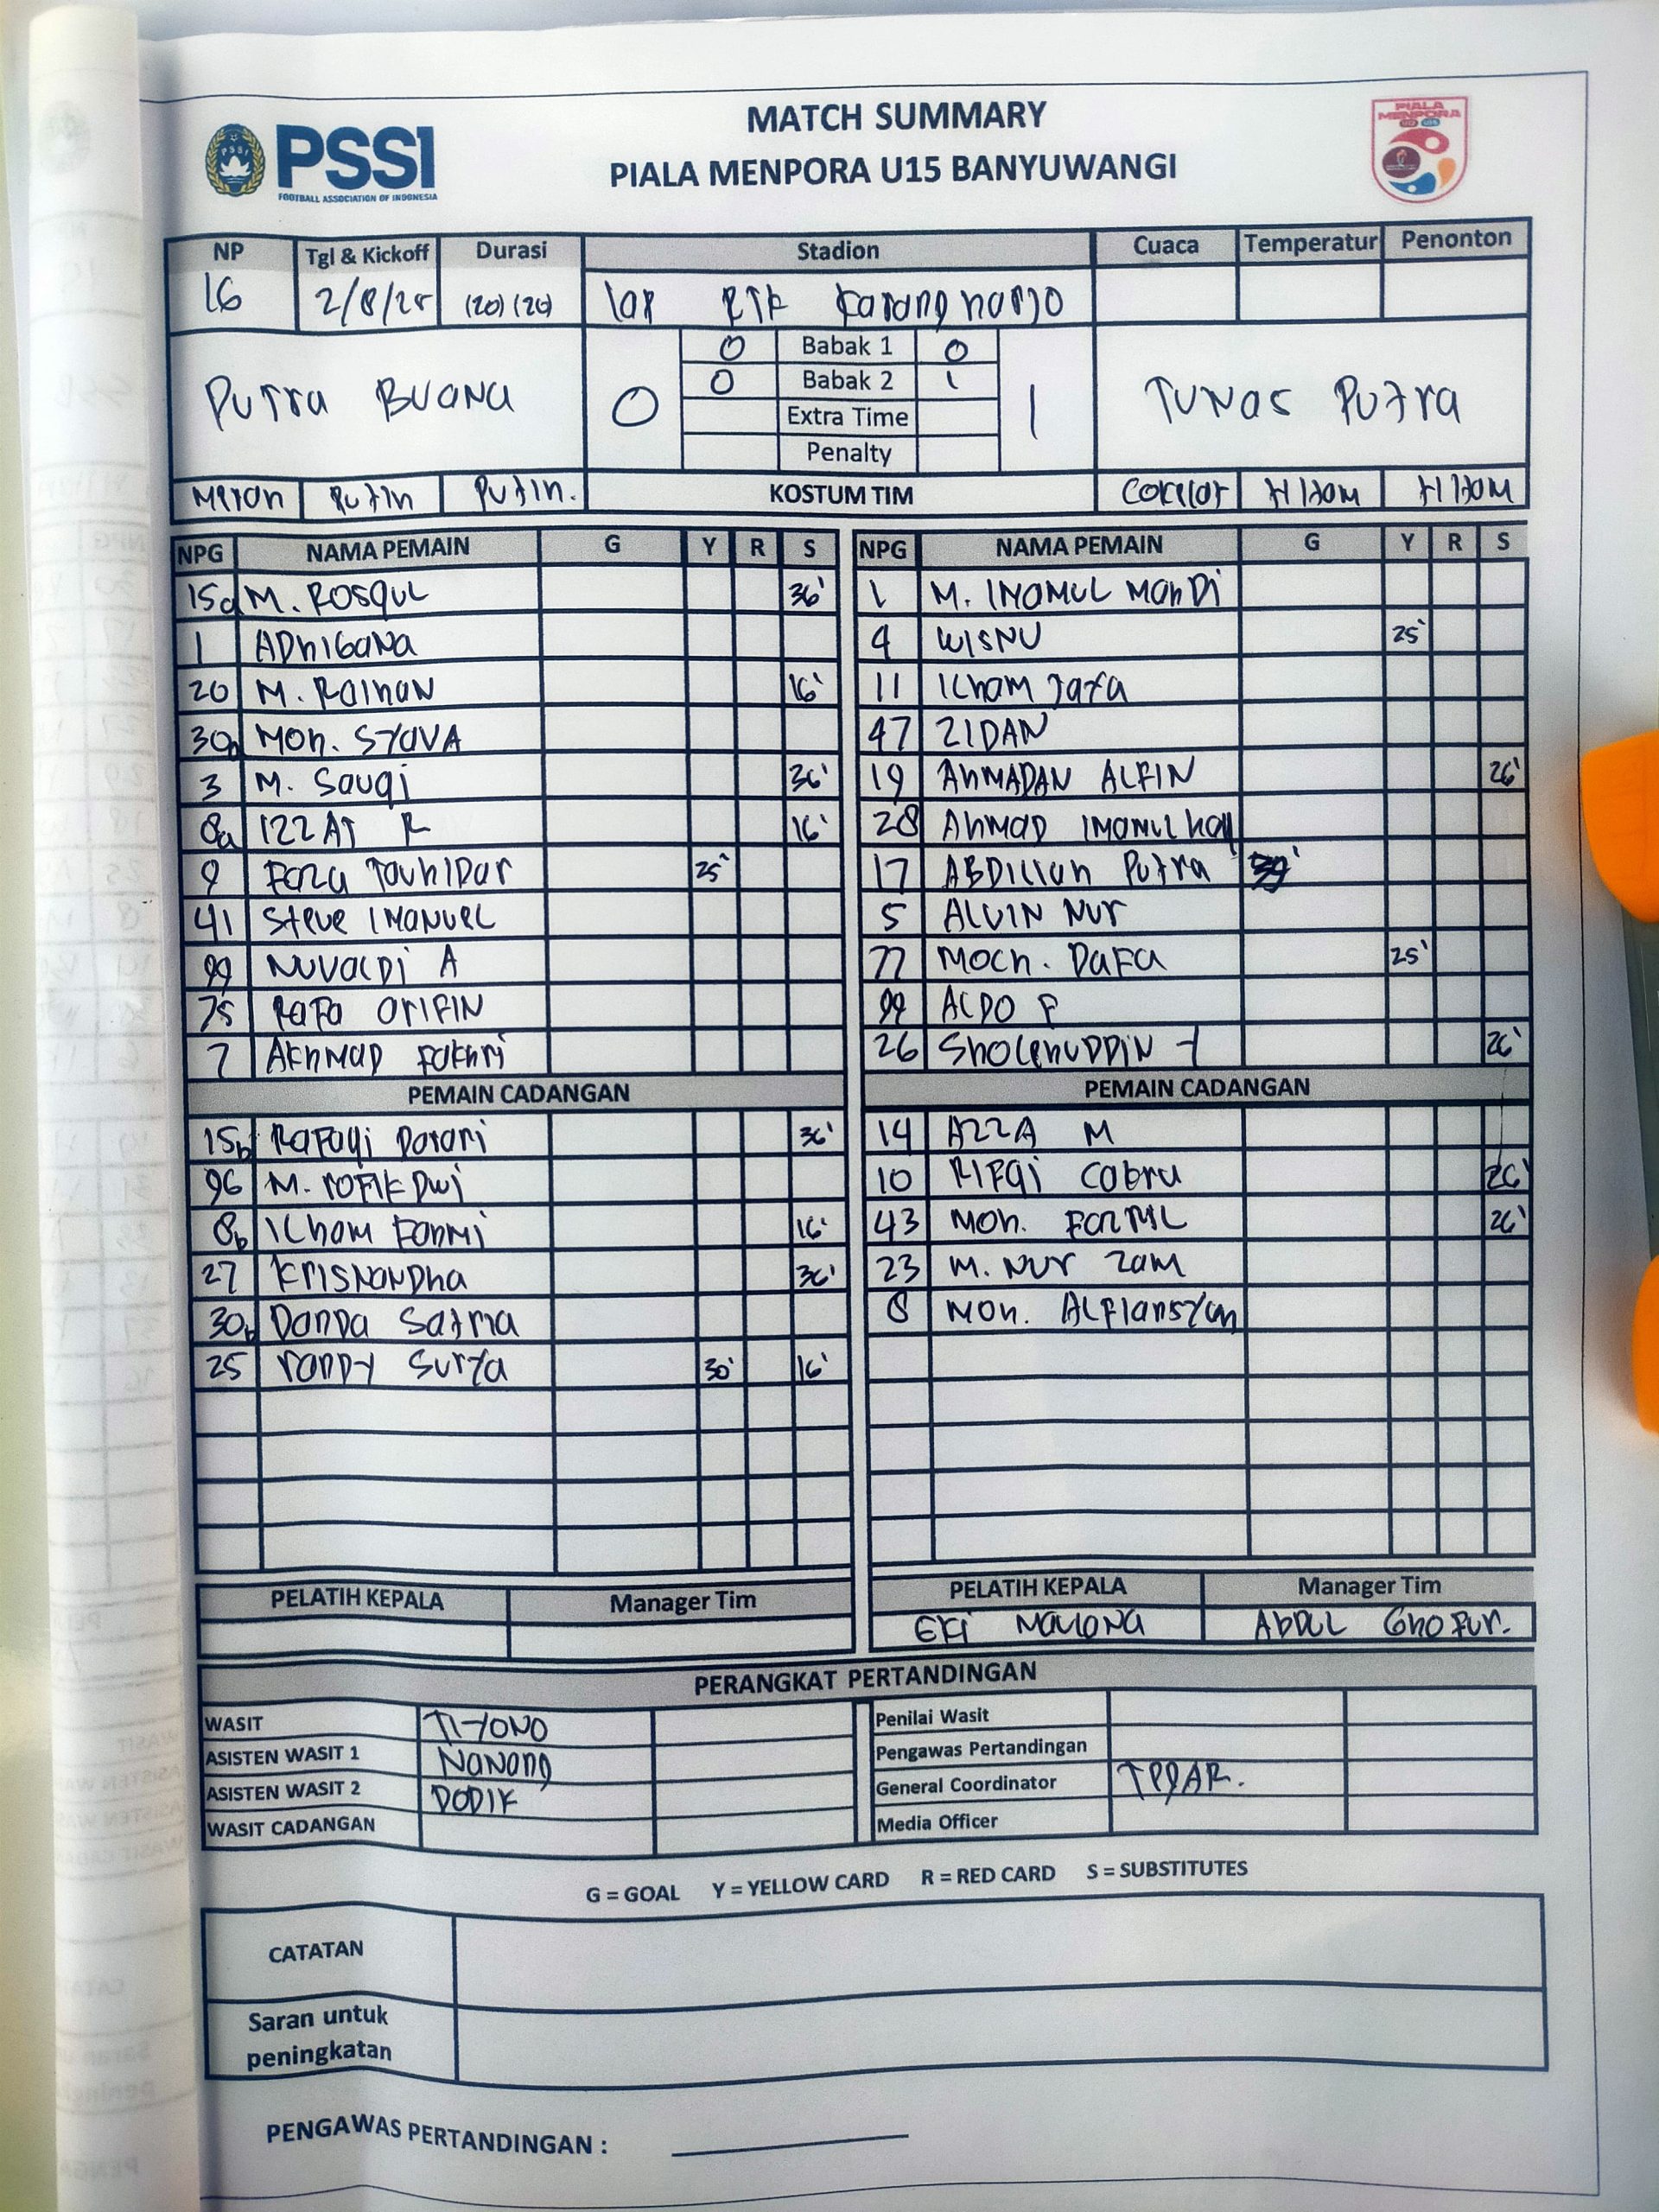 MATCH SUMMARY
PIALA MENPORA U15 BANYUWANGI
PSSI
FOOTBALL ASSOCIATION OF INDONESIA
PIALA MENPORA
NP Tgl & Kickoff Durasi Stadion Cuaca Temperatur Penonton
16 2/8/25 (20) (20) lap RTH Karangharjo
Putra Buana 0 Tunas Putra 1
0 Babak 1 0
0 Babak 2 1
Extra Time
Penalty
Merah Putih Putih. KOSTUM TIM Coklat Hitam Hitam
NPG NAMA PEMAIN G Y R S NPG NAMA PEMAIN G Y R S
15a M. Rosqul 36' 1 M. Imamul Mahdi
1 Adhigana 4 Wisnu 25'
20 M. Raihan 16' 11 Ilham Jafa
30a Moh. Syava 47 Zidan
3 M. Sauqi 36' 19 Ahmadan Alfin 26'
8a Izzat R 16' 28 Ahmad Imamul
9 25' 17 Abdillah Putra
41 Steve Imanuel 5 Alvin Nur
99 Nuvaldi A 77 Moch. Dafa 25'
75 Rafa Arifin 99 Aldo F
7 Akhmad Fakhri 26 Sholehuddin Y 26'
PEMAIN CADANGAN PEMAIN CADANGAN
15b Rafaqi Darani 36' 14 Azza M
96 M. Rofik Dwi 10 Rifqi Cabru 26'
8b Ilham Fahmi 16' 43 Moh. 26'
27 Krisnandha 36' 23 M. Nur Zam
30b Danda Satria 8 Moh. Alfiansyah
25 Randy Surya 30' 16'
PELATIH KEPALA Manager Tim PELATIH KEPALA Manager Tim
Eki Maulana Abdul Ghofur.
PERANGKAT PERTANDINGAN
WASIT Tiyono Penilai Wasit
ASISTEN WASIT 1 Nanang Pengawas Pertandingan
ASISTEN WASIT 2 Dodik General Coordinator
WASIT CADANGAN Media Officer
G = GOAL Y = YELLOW CARD R = RED CARD S = SUBSTITUTES
CATATAN
Saran untuk
peningkatan
PENGAWAS PERTANDINGAN :